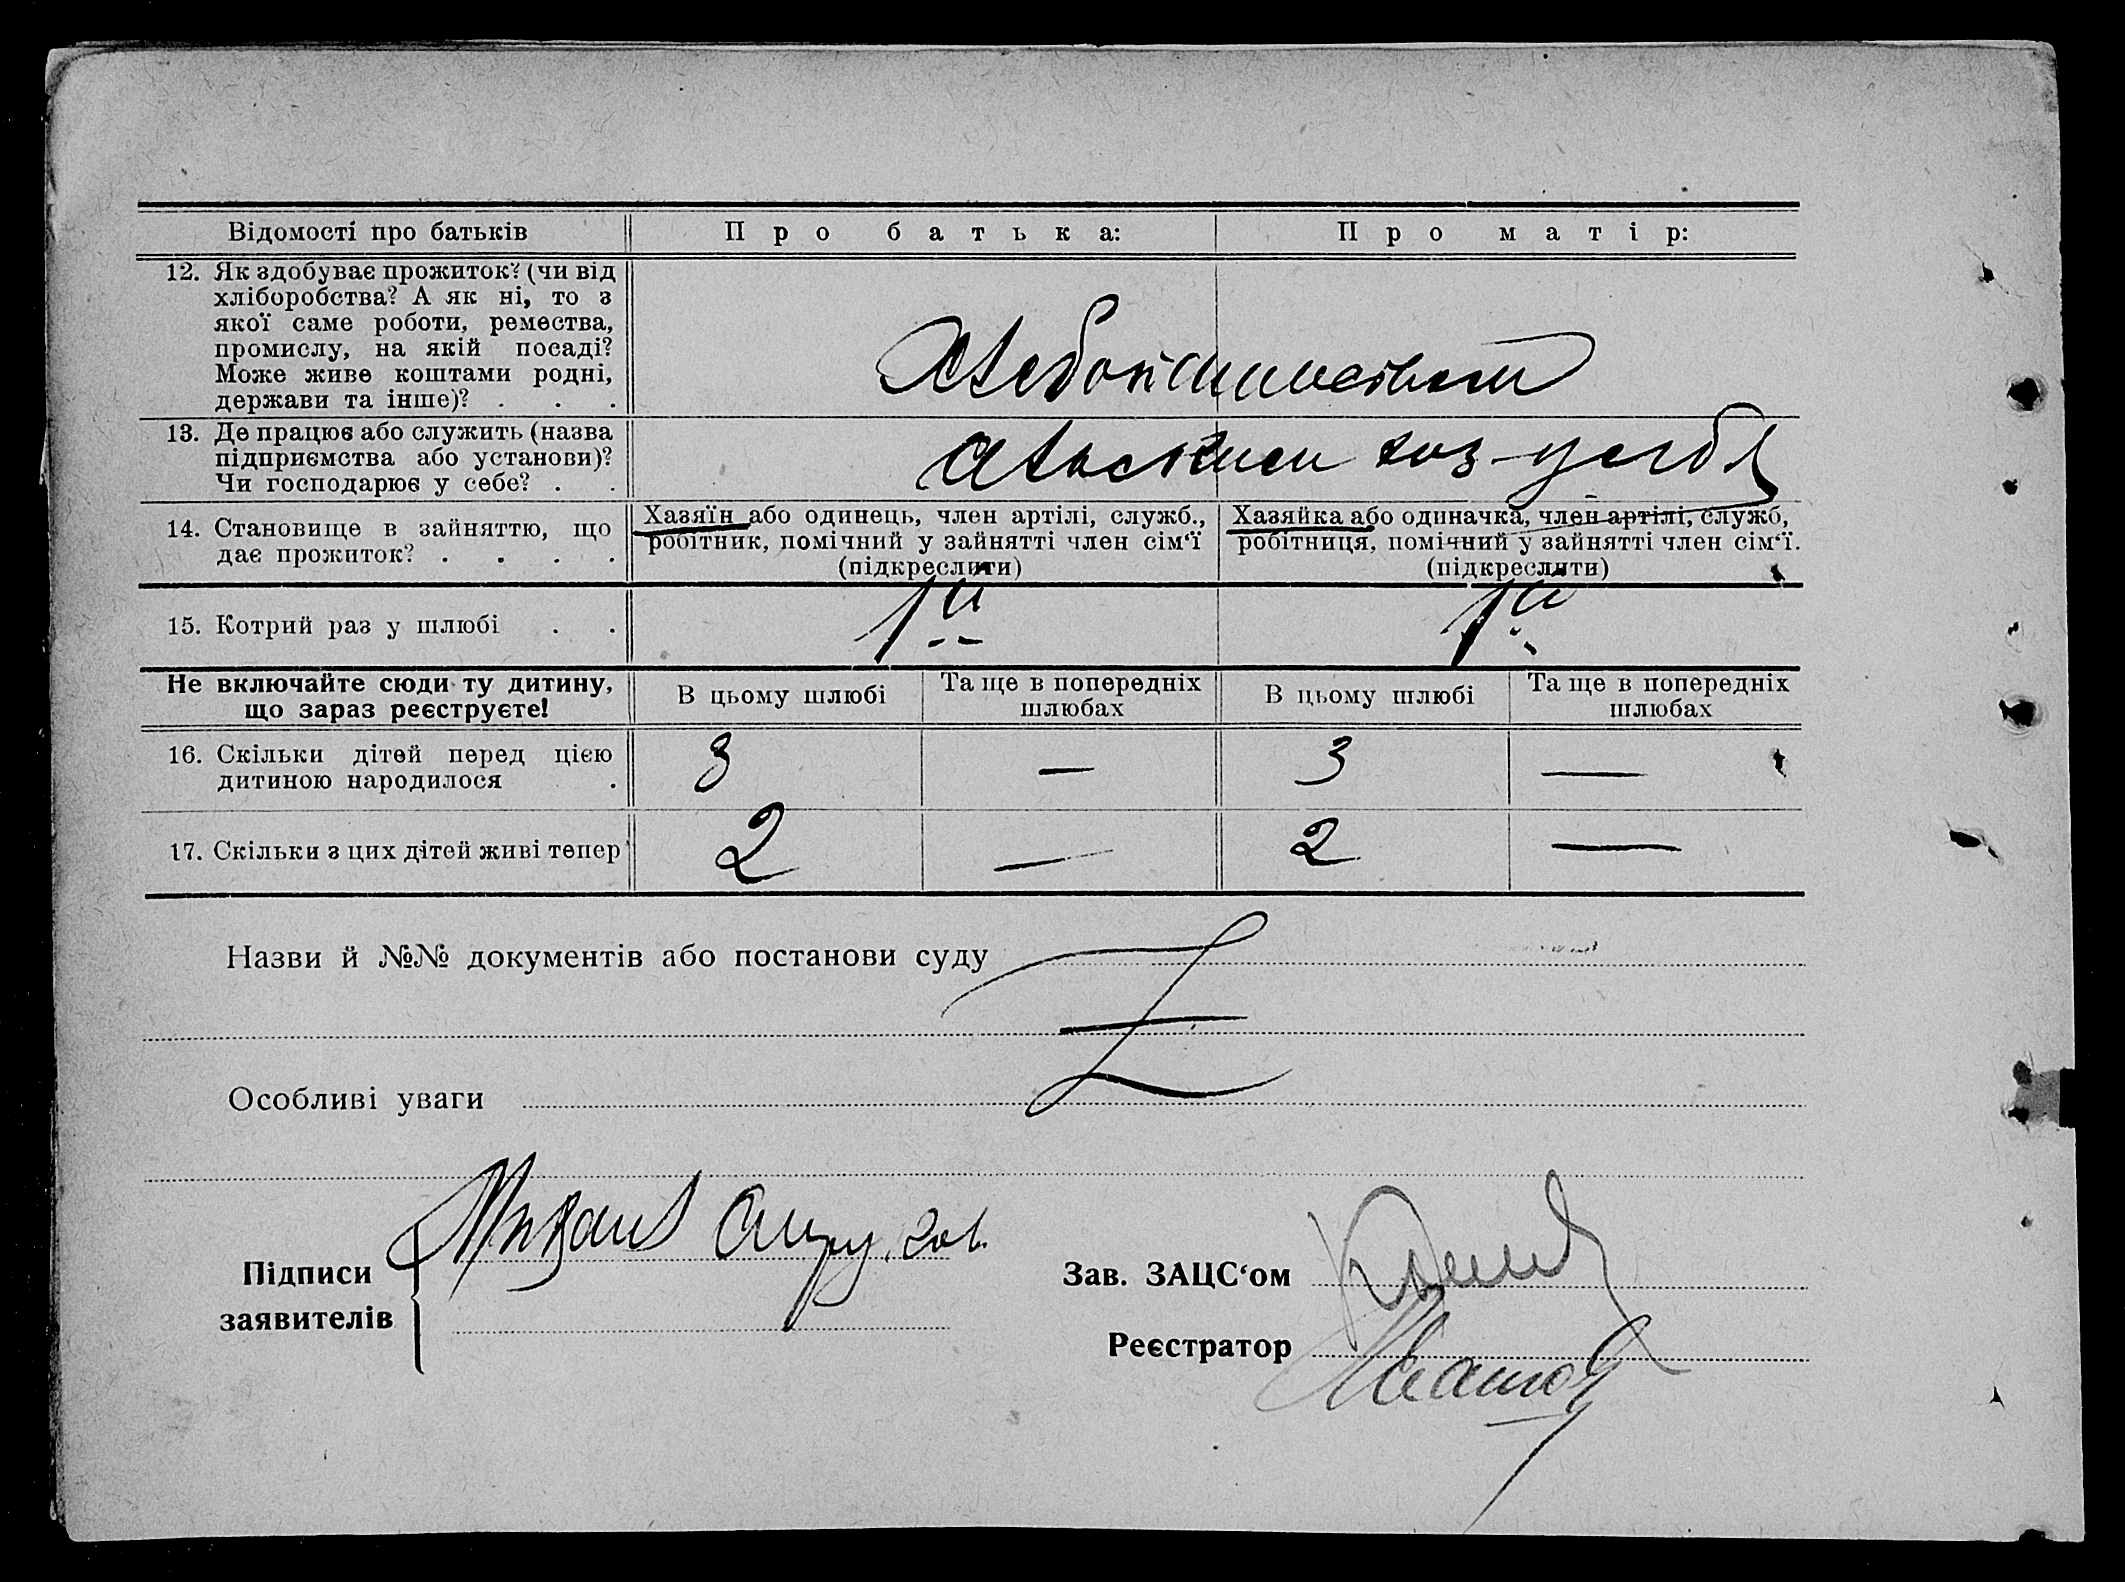 Відомості про батьків
Про батька:
Про матір:
12. Як здобуває прожиток? (чи від
хліборобства? А як ні, то з
якої саме роботи, ремества,
промислу, на якій посаді?
Може живе коштами родні,
держави та інше)? . . .
13. Де працює або служить (назва
підприємства або установи)?
Чи господарює у себе? . .
14. Становище в зайняттю, що
дає прожиток? . . . .
Хазяїн або одинець, член артілі, служб.,
робітник, помічний у зайнятті член сім‘ї
(підкреслити)
Хазяйка або одиначка, член артілі, служб,
робітниця, помічний у зайнятті член сім‘ї.
(підкреслити)
15. Котрий раз у шлюбі . .
1й
1й
Не включайте сюди ту дитину,
що зараз реєструєте!
В цьому шлюбі
Та ще в попередніх
шлюбах
В цьому шлюбі
Та ще в попередніх
шлюбах
16. Скільки дітей перед цією
дитиною народилося .
3
—
3
—
17. Скільки з цих дітей живі тепер
2
—
2
—
Назви й №№ документів або постанови суду
Особливі уваги
Підписи
заявителів
Зав. ЗАЦС‘ом
Реєстратор